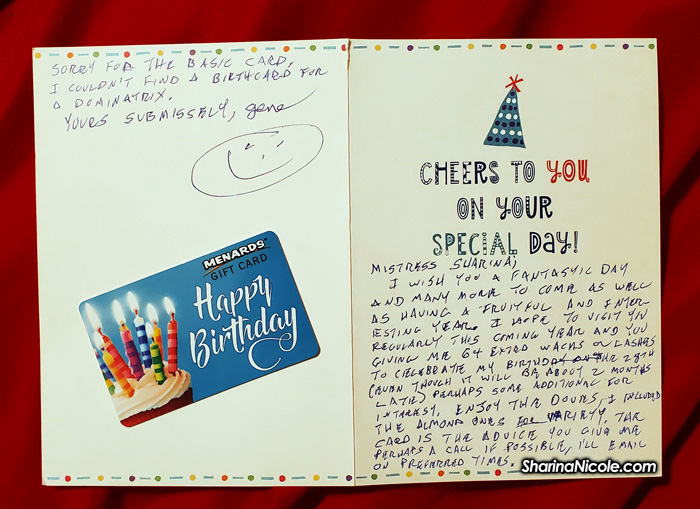 SORRY FOR THE BASIC CARD,
I COULDN'T FIND A BIRTHCARD FOR
A DOMINATRIX.
YOURS SUBMISSELY, gene
MENARDS
GIFT CARD
Happy
Birthday
CHEERS TO YOU
ON YOUR
SPECIAL DAY!
MISTRESS SHARINA,
I WISH YOU A FANTASTIC DAY
AND MANY MORE TO COME AS WELL
AS HAVING A FRUITFUL AND INTER-
ESTING YEAR. I HOPE TO VISIT YOU
REGULARLY THIS COMING YEAR AND YOU
GIVING ME 64 EXTRA WACKS OR LASHES
TO CELEBRATE MY BIRTHDAY ON THE 28TH
(EVEN THOUGH IT WILL BE ABOUT 2 MONTHS
LATE) PERHAPS SOME ADDITIONAL FOR
INTEREST. ENJOY THE DOVES, I INCLUDED
THE ALMOND ONES FOR VARIETY. THE
CARD IS THE ADVICE YOU GIVE ME
PERHAPS A CALL IF POSSIBLE, I'LL EMAIL
ON PREFERRED TIMES.
SharinaNicole.com